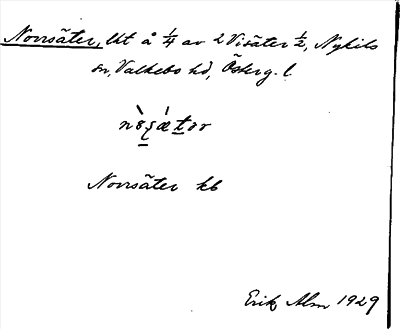 Norrsäter, lht å 1/4 av 2 Visäter 1/2, Nykils
sn, Valkebo hd, Österg. l.
Norrsäter kb
Erik Alm 1929